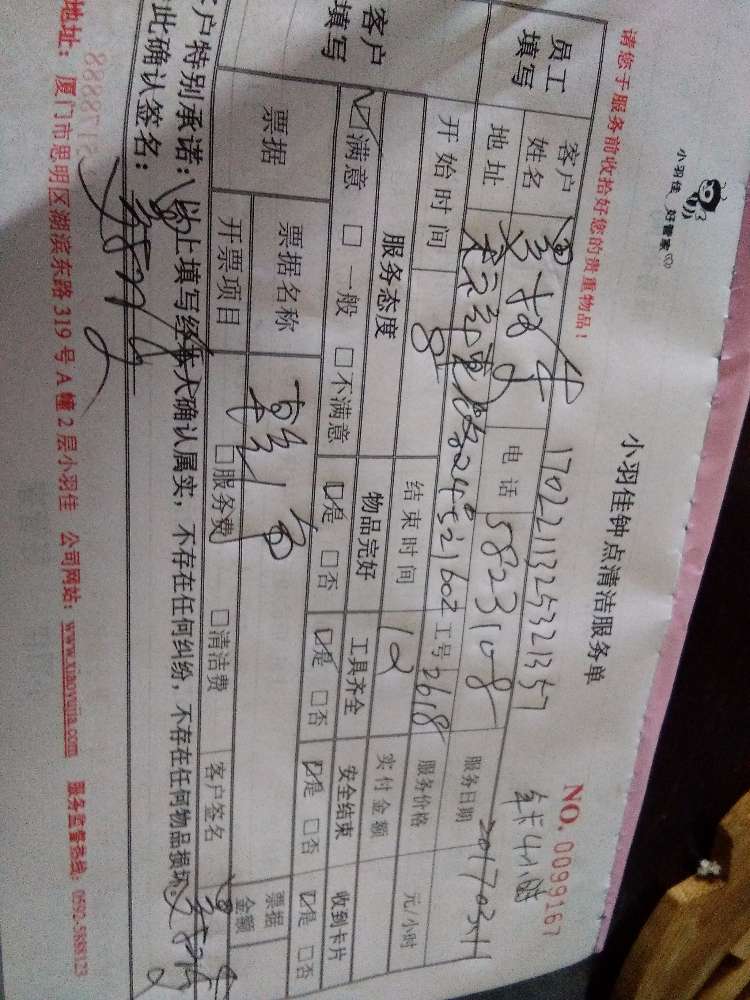 小羽佳 好管家
小羽佳钟点清洁服务单
NO. 0099167
请您于服务前收拾好您的贵重物品！
1702211325321357
年卡4小时
员工填写
客户姓名
电话 5823108
服务日期 20170311
地址
工号 2618
服务价格 元/小时
开始时间 8
结束时间 12
实付金额
客户填写
服务态度 物品完好 工具齐全 安全结束 收到卡片
☑满意 □一般 □不满意 ☑是 □否 ☑是 □否 ☑是 □否 ☑是 □否
票据
票据名称
票据金额
开票项目 □服务费 □清洁费 客户签名
客户特别承诺：以上填写经本人确认属实，不存在任何纠纷，不存在任何物品损坏。
此确认签名：
地址：厦门市思明区湖滨东路319号A幢2层小羽佳 公司网站：www.xiaoyujia.com 服务监督热线：0592-5888123